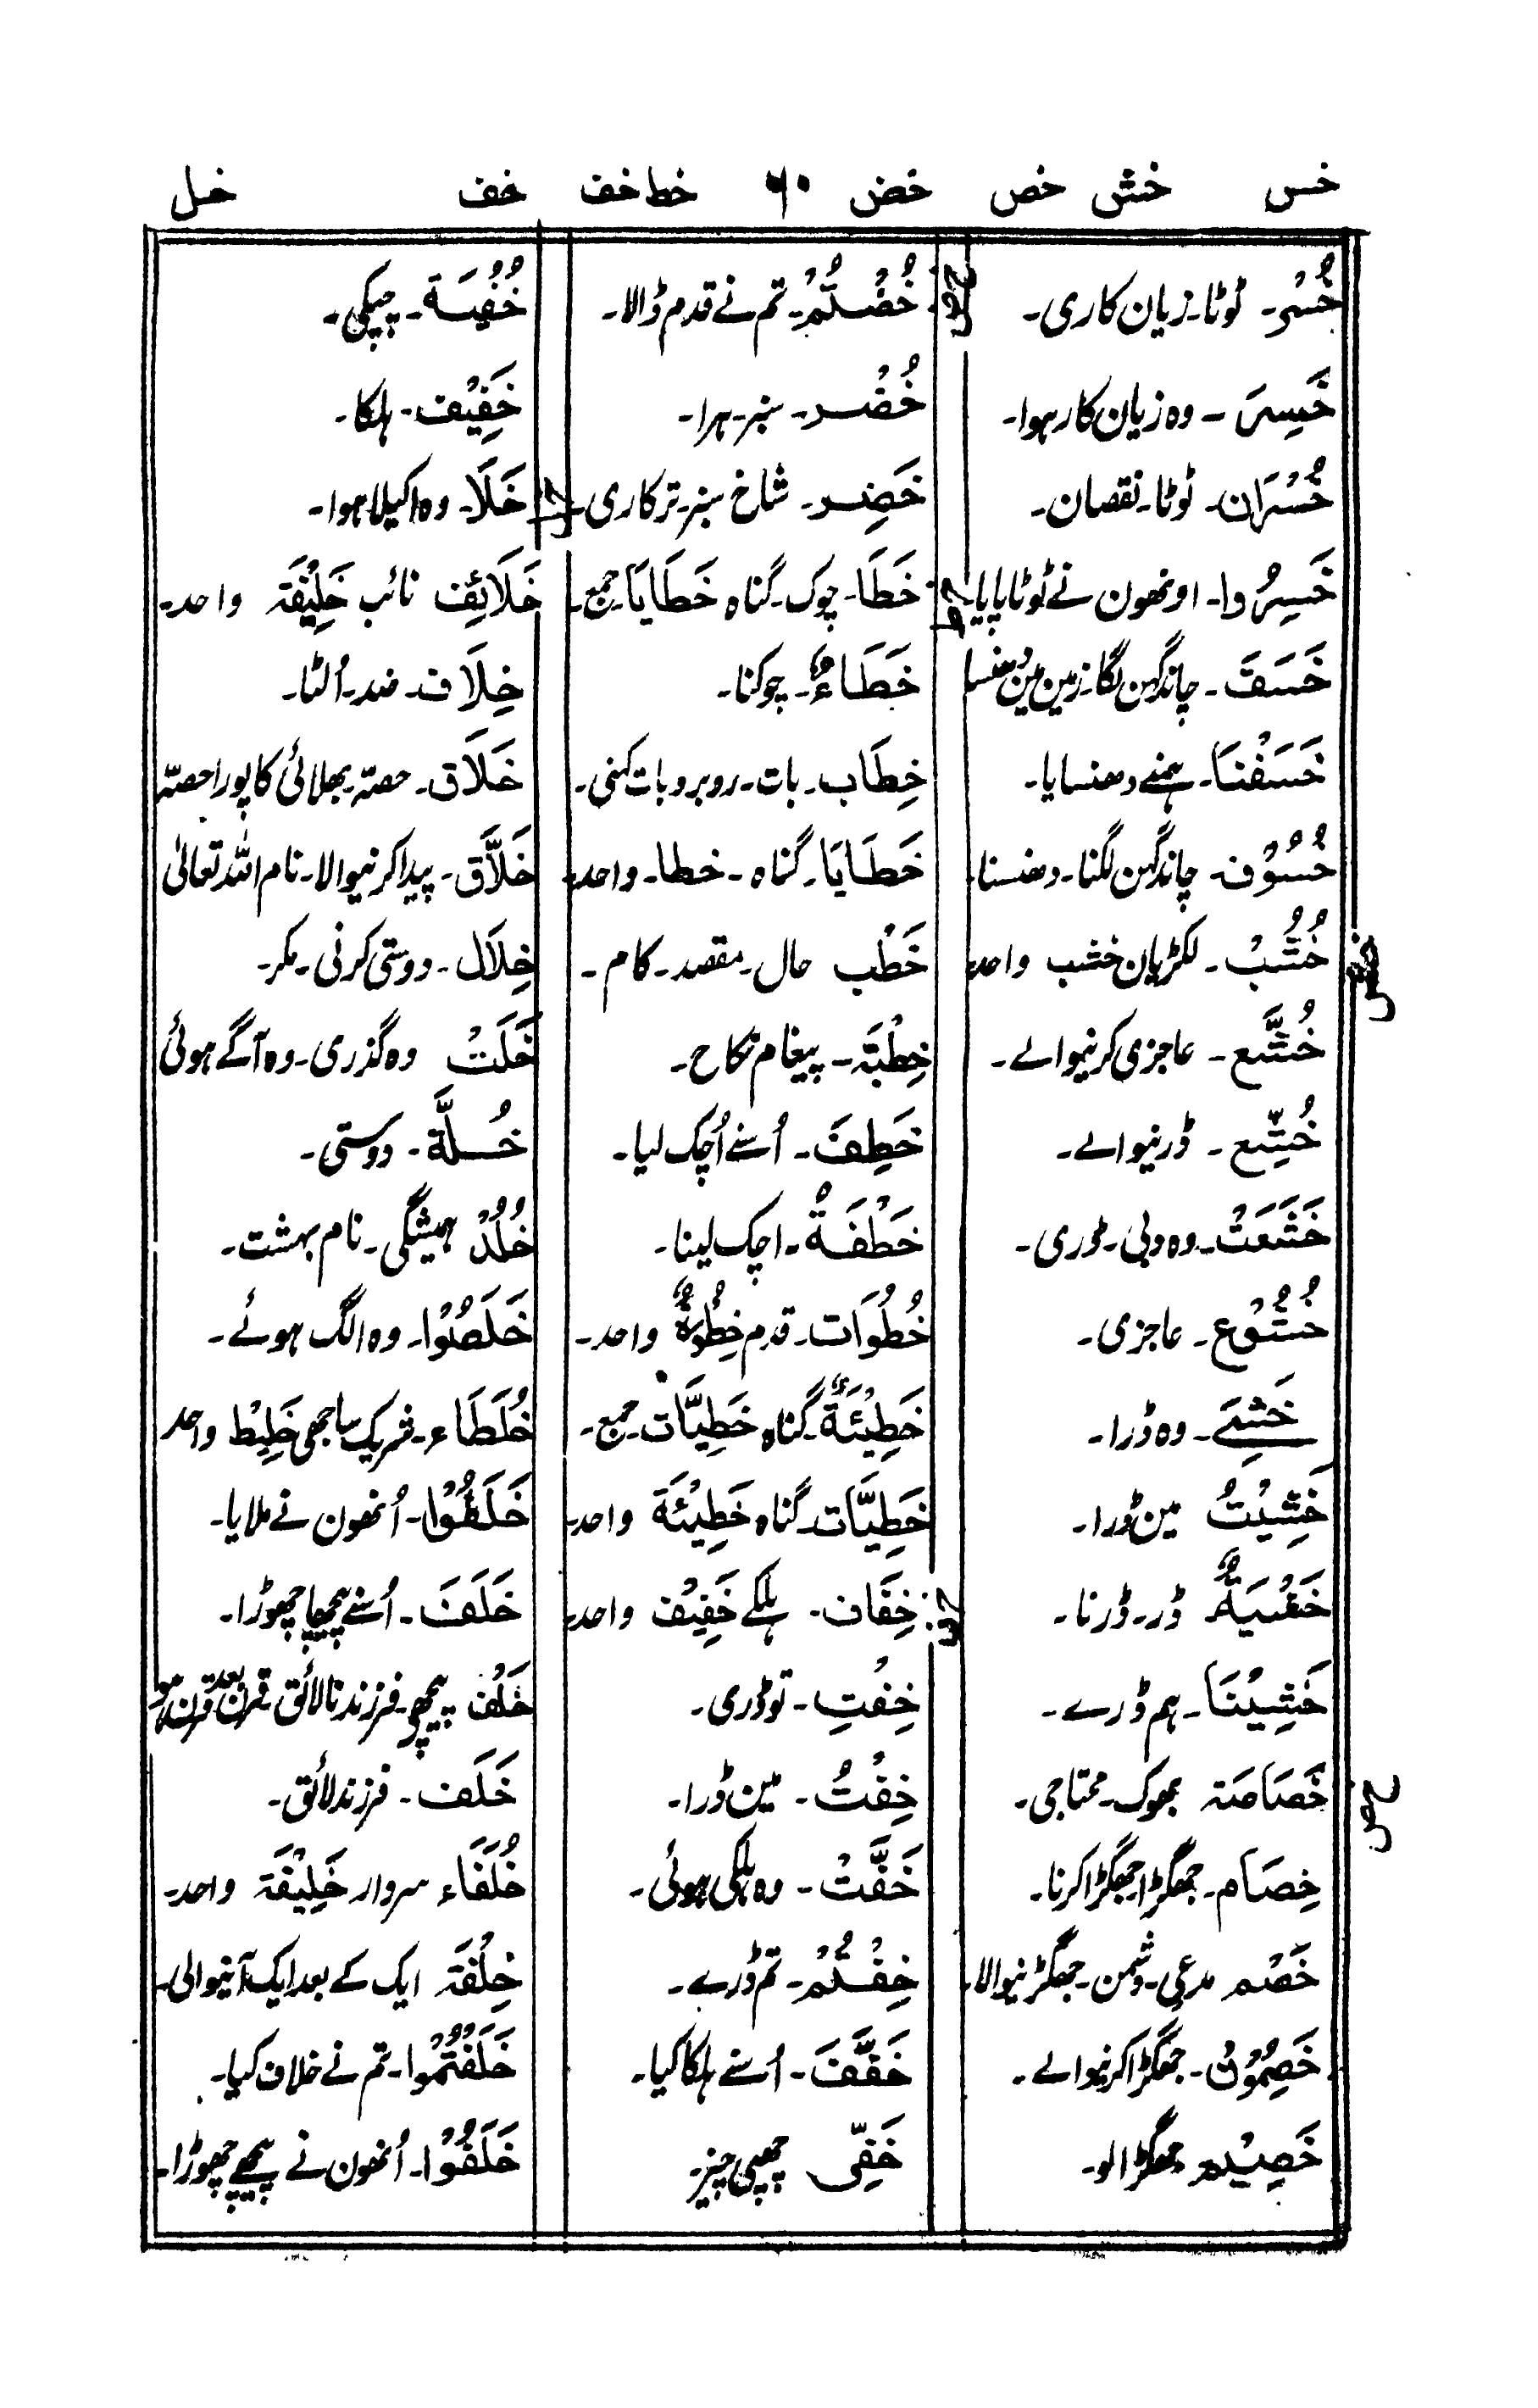 خس خش خص خض ٦٠ خط خف خف خل
خُسْر۔ ٹوٹا۔ زیان کاری۔
خَسِرَ ۔ وہ زیان کار ہوا۔
خُسْرَان۔ ٹوٹا۔ نقصان۔
خَسِرُوا۔ اونھون نے ٹوٹا پایا
خَسَفَ ۔ چاند گہن لگا۔ زمین مین دھنسا
خَسَفْنَا۔ ہمنے دھنسایا۔
خُسُوْف۔ چاند گہن لگنا۔ دھنسنا۔
خش
خُشُبْ ۔ لکڑیان خشب واحد
خُشَّع ۔ عاجزی کرنیوالے ۔
خُشِّع ۔ ڈرنیوالے ۔
خَشَعَتْ۔ وہ دبی۔ ڈری ۔
خُشُوْع ۔ عاجزی ۔
خَشِیَ ۔ وہ ڈرا۔
خَشِیْتُ مین ڈرا۔
خَشْیَةٌ ڈر۔ ڈرنا ۔
خَشِیْنَا۔ ہم ڈرے ۔
خص
خَصَاصَۃ بھوک۔ محتاجی ۔
خِصَام۔ جھگڑا جھگڑا کرنا۔
خَصْم مدعی۔ دشمن۔ جھگڑنیوالا۔
خَصِمُوْنَ۔ جھگڑا کرنیوالے ۔
خَصِیْم جھگڑالو۔
خض
خُضْتُمْ۔ تم نے قدم ڈالا۔
خُضْر۔ سبز۔ ہرا۔
خَضِر۔ شاخ سبز۔ ترکاری۔
خط
خَطَا۔ چوک۔ گناہ خَطَایَا۔ جمع۔
خَطَاءٌ۔ چوکنا۔
خِطَاب۔ بات۔ روبرو بات کہنی۔
خَطَایَا۔ گناہ ۔ خطا۔ واحد۔
خَطْب حال۔ مقصد۔ کام ۔
خِطْبَۃ۔ پیغام نکاح ۔
خَطِفَ۔ اُسنے اُچک لیا۔
خَطْفَةٌ۔ اچک لینا۔
خُطُوَات۔ قدم خُطْوَةٌ واحد۔
خَطِیْئَةٌ۔ گناہ خَطِیَّات جمع۔
خَطِیَّات۔ گناہ خَطِیْئَة واحد۔
خف
خِفَاف۔ ہلکے خَفِیْف واحد۔
خِفْتِ ۔ تو ڈری۔
خِفْتُ ۔ مین ڈرا۔
خَفَّتْ ۔ وہ ہلکی ہوئی۔
خِفْتُمْ۔ تم ڈرے ۔
خَفَّفَ ۔ اُسنے ہلکا کیا۔
خَفِیّ چھپی چیز۔
خُفْیَة۔ چپکی۔
خَفِیْف۔ ہلکا۔
خل
خَلَا۔ وہ اکیلا ہوا۔
خَلَائِف نائب خَلِیْفَۃ واحد۔
خِلَاف۔ ضد۔ اُلٹا۔
خَلَاق ۔ حصّہ۔ بھلائی کا پورا حصّہ
خَلَّاق۔ پیدا کرنیوالا۔ نام اللہ تعالٰی
خِلَال۔ دوستی کرنی۔ مکر۔
خَلَتْ وہ گذری۔ وہ آگے ہوئی
خُلَّة۔ دوستی ۔
خُلْدْ ہمیشگی۔ نام بہشت۔
خَلَصُوْا۔ وہ الگ ہوئے ۔
خُلَطَاء۔ شریک ساجھی خَلِیْط واحد
خَلَطُوْا۔ اُنھون نے ملایا۔
خَلَفَ۔ اُسنے پیچھا چھوڑا۔
خَلْف پیچھی۔ فرزند نالائق قرن بعد قرن
خَلَف ۔ فرزند لائق ۔
خُلَفَاء سردار خَلِیْفَۃ واحد۔
خِلْفَۃ ایک کے بعد ایک آنیوالی۔
خَلَفْتُمُوْا۔ تم نے خلاف کیا۔
خَلَفُوْا۔ اُنھون نے پیچھے چھوڑا۔